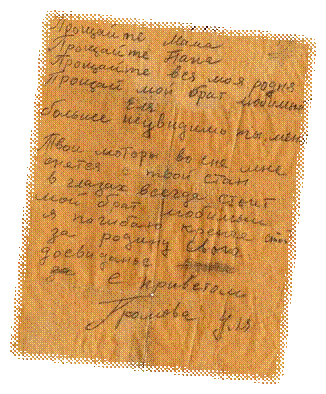 Прощайте Мама
Прощайте Папа
Прощайте вся моя родня
Прощай мой брат любимый
Еля
больше неувидишь ты меня
Твои моторы во сне мне
снятся твой стан
в глазах всегда стоит
мой брат любимый
я погибаю крепче стой
за родину свою
досвиданье
С приветом
Громова Уля